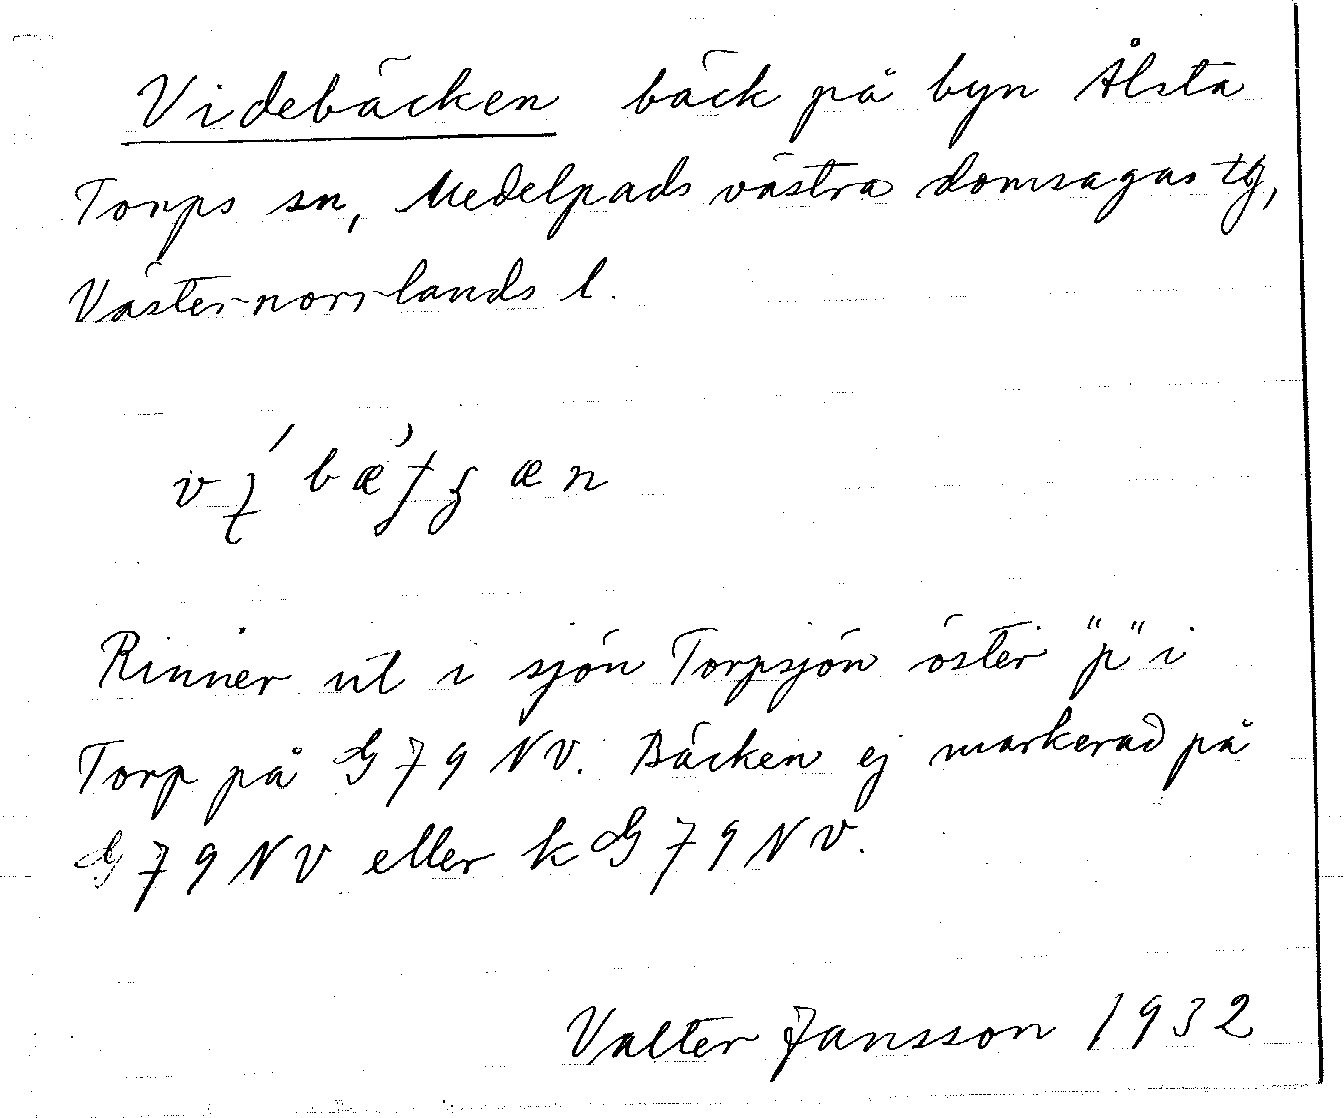 Videbäcken bäck på byn Ålsta
Torps sn, Medelpads västra domsagas tg,
Västernorrlands l.
Rinner ut i sjön Torpsjön öster "p" i
Torp på G79NV. Bäcken ej markerad på
G79NV eller kG79NV.
Valter Jansson 1932